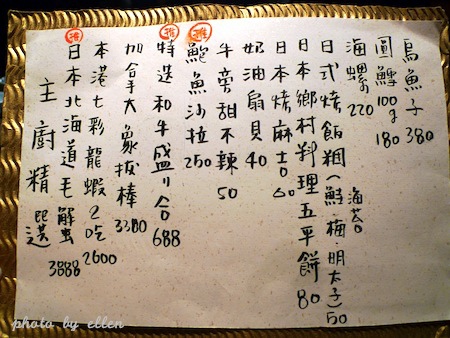 烏魚子 380
圓鱈 100g 180
海螺 220
日式烤飯糰(鮭·梅·明太子) 50
海苔
日本鄉村料理五平餅 80
日本烤麻吉 60
奶油扇貝 40
牛旁甜不辣 50
推
鮑魚沙拉 250
推
特選和牛盛り合 688
加拿大象拔棒 3380
本港七彩龍蝦2吃 2600
日本北海道毛蟹 3888
主廚精選
photo by ellen